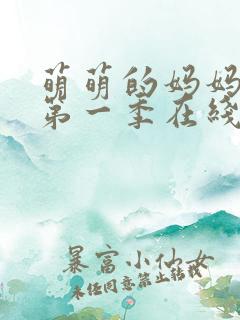 萌萌的妈妈
第一季在线
暴富小仙女
未经同意禁止转载